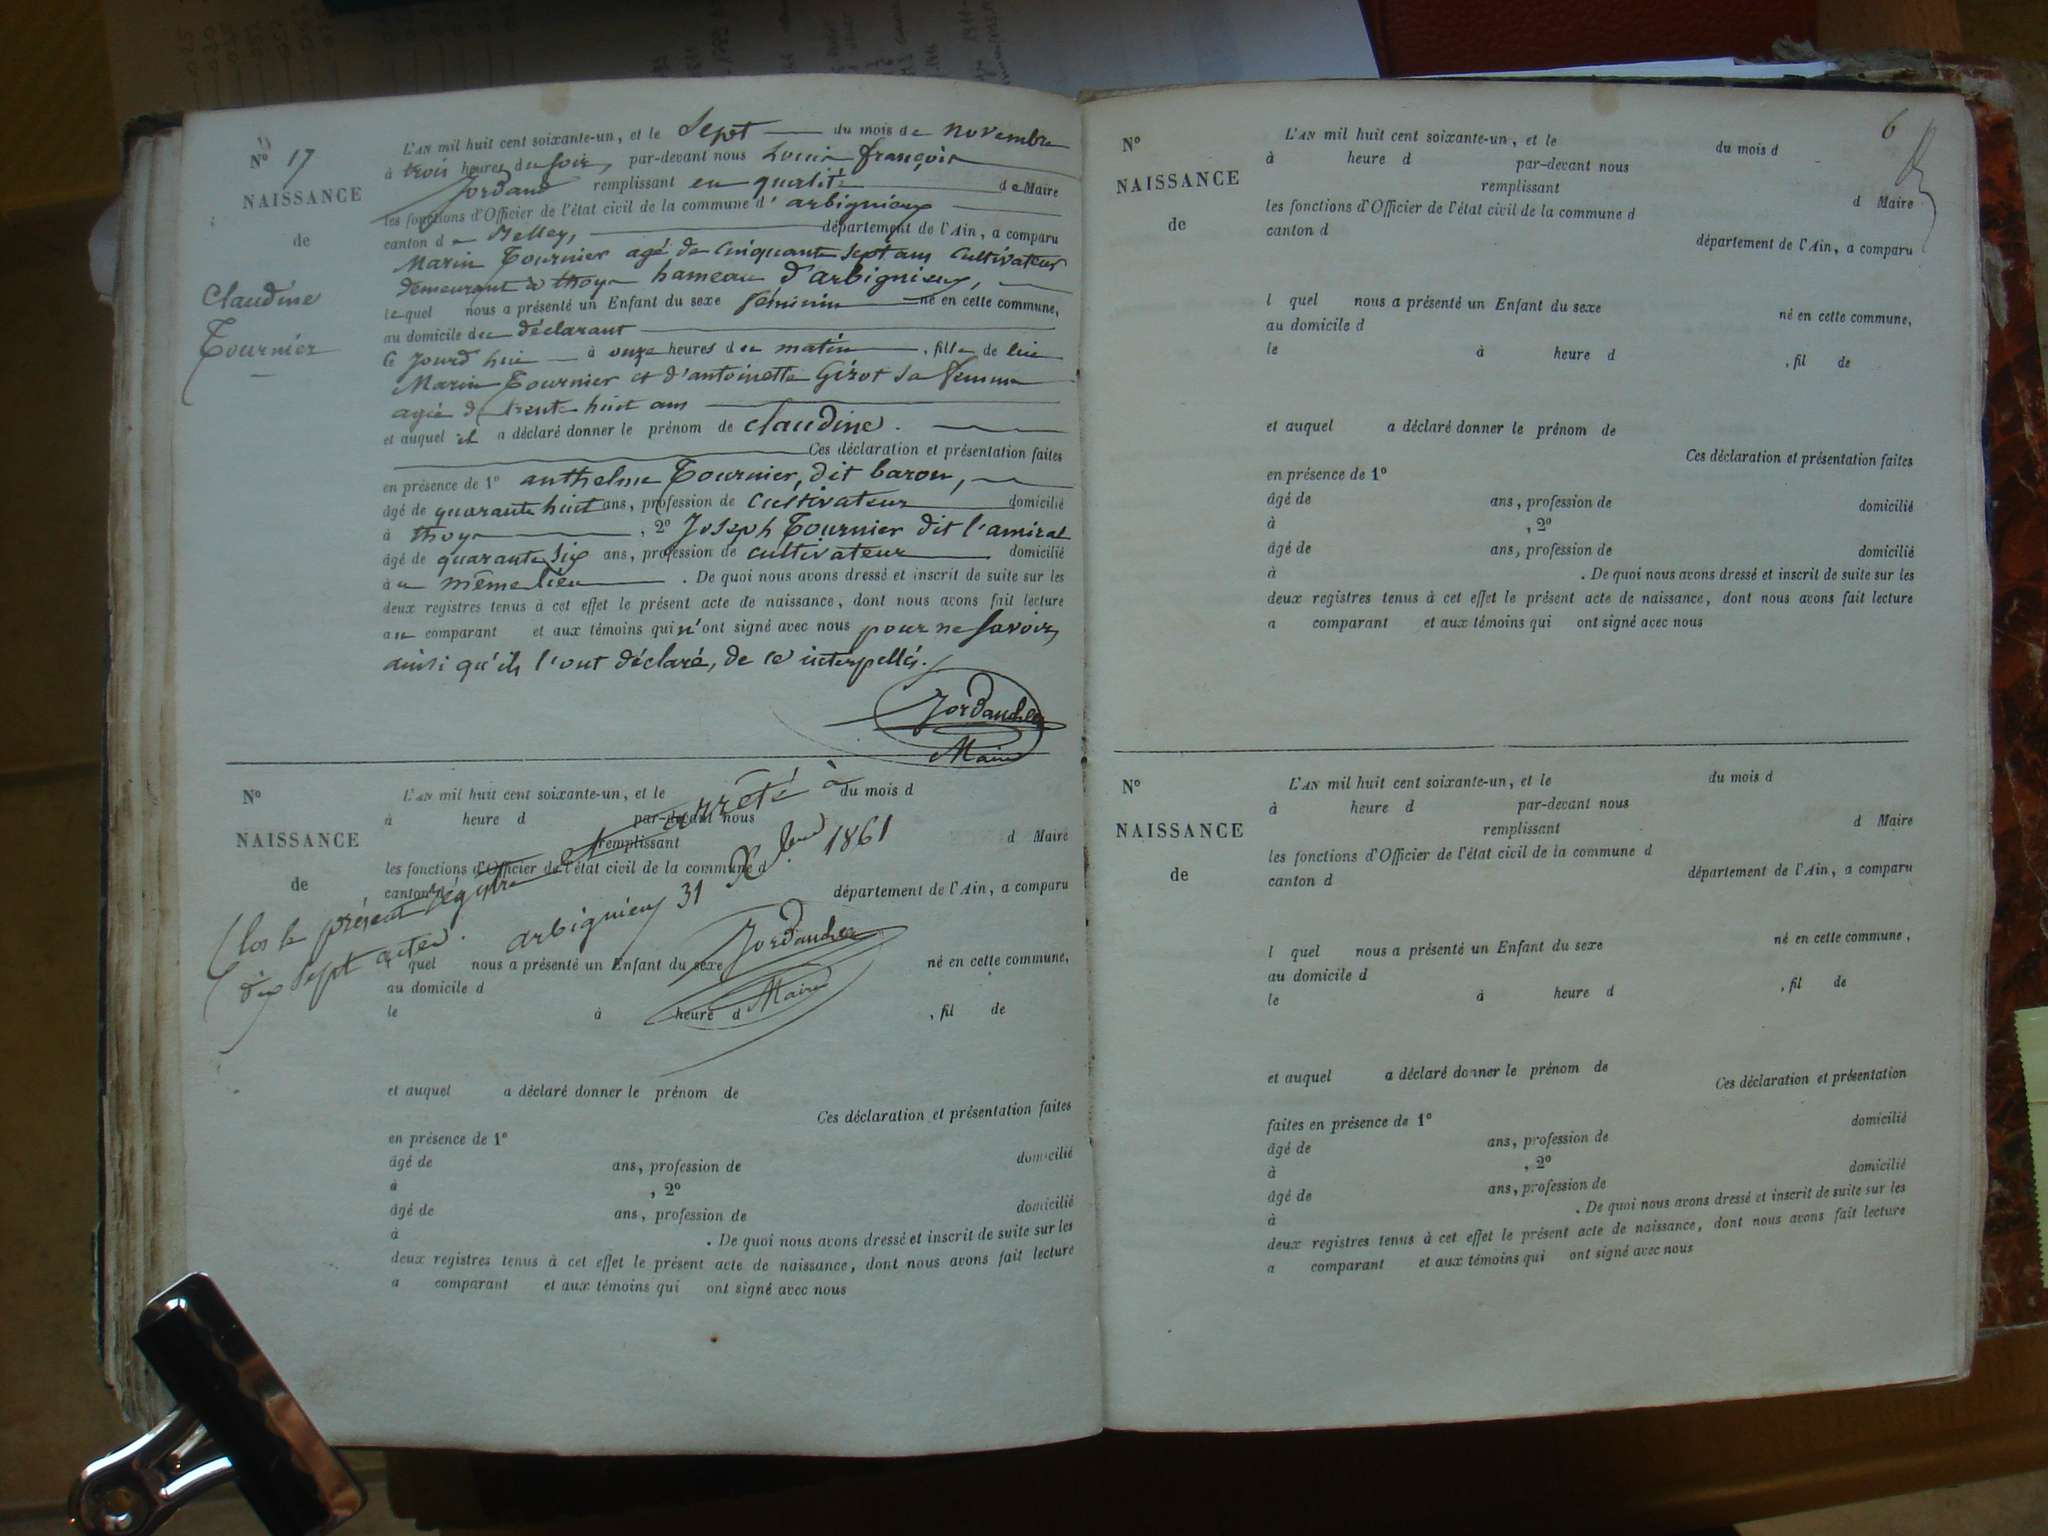 N° 17
NAISSANCE
de
Claudine
Tournier
L'AN mil huit cent soixante-un, et le sept du mois de novembre
à trois heures du soir, par-devant nous Louis françois
Jordand remplissant en qualité de Maire
les fonctions d'Officier de l'état civil de la commune d'arbignieu
canton de Belley, département de l'Ain, a comparu
Marin Tournier agé de cinquante sept ans cultivateur
demeurant à thoys hameau d'arbignieu,
lequel nous a présenté un Enfant du sexe féminin né en cette commune,
au domicile du déclarant
ce jourd'hui à onze heures du matin, fille de lui
Marin Tournier et d'antoinette Girot sa femme
agée de trente huit ans
et auquel il a déclaré donner le prénom de Claudine.
Ces déclaration et présentation faites
en présence de 1° anthelme Tournier, dit baron,
âgé de quarante huit ans, profession de cultivateur domicilié
à thoys, 2° Joseph Tournier dit l'amiral
âgé de quarante six ans, profession de cultivateur domicilié
au même lieu. De quoi nous avons dressé et inscrit de suite sur les
deux registres tenus à cet effet le présent acte de naissance, dont nous avons fait lecture
au comparant et aux témoins qui n'ont signé avec nous pour ne savoir,
ainsi qu'ils l'ont déclaré, de ce interpellés.
Maire
N°
NAISSANCE
de
L'AN mil huit cent soixante-un, et le du mois d
à heure d par-devant nous
remplissant d Maire
les fonctions d'Officier de l'état civil de la commune d
canton d département de l'Ain, a comparu
Clos le présent régistre et arrêté à
dix sept actes. arbignieu 31 Xbre 1861
Maire
l quel nous a présenté un Enfant du sexe né en cette commune,
au domicile d
le à heure d , fil de
et auquel a déclaré donner le prénom de
Ces déclaration et présentation faites
en présence de 1°
âgé de ans, profession de domicilié
à , 2°
âgé de ans, profession de domicilié
à . De quoi nous avons dressé et inscrit de suite sur les
deux registres tenus à cet effet le présent acte de naissance, dont nous avons fait lecture
a comparant et aux témoins qui ont signé avec nous
6
N°
NAISSANCE
de
L'AN mil huit cent soixante-un, et le du mois d
à heure d par-devant nous
remplissant d Maire
les fonctions d'Officier de l'état civil de la commune d
canton d département de l'Ain, a comparu
l quel nous a présenté un Enfant du sexe né en cette commune,
au domicile d
le à heure d , fil de
et auquel a déclaré donner le prénom de
Ces déclaration et présentation faites
en présence de 1°
âgé de ans, profession de domicilié
à , 2°
âgé de ans, profession de domicilié
à . De quoi nous avons dressé et inscrit de suite sur les
deux registres tenus à cet effet le présent acte de naissance, dont nous avons fait lecture
a comparant et aux témoins qui ont signé avec nous
N°
NAISSANCE
de
L'AN mil huit cent soixante-un, et le du mois d
à heure d par-devant nous
remplissant d Maire
les fonctions d'Officier de l'état civil de la commune d
canton d département de l'Ain, a comparu
l quel nous a présenté un Enfant du sexe né en cette commune,
au domicile d
le à heure d , fil de
et auquel a déclaré donner le prénom de
Ces déclaration et présentation
faites en présence de 1° domicilié
âgé de ans, profession de
à , 2° domicilié
âgé de ans, profession de
à . De quoi nous avons dressé et inscrit de suite sur les
deux registres tenus à cet effet le présent acte de naissance, dont nous avons fait lecture
a comparant et aux témoins qui ont signé avec nous